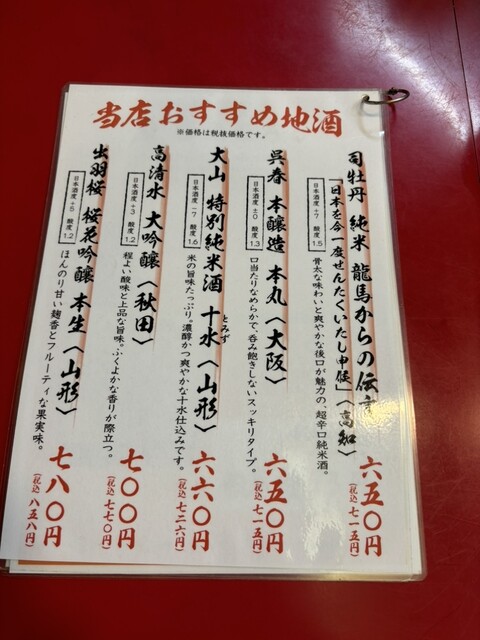 当店おすすめ地酒
※価格は税抜価格です。
司牡丹 純米 龍馬からの伝言
「日本を今一度せんたくいたし申候」〈高知〉
日本酒度+7 酸度1.5
骨太な味わいと爽やかな後口が魅力の、超辛口純米酒。
六五〇円
(税込 七一五円)
呉春 本醸造 本丸〈大阪〉
日本酒度±0 酸度1.3
口当たりなめらかで、呑み飽きしないスッキリタイプ。
六五〇円
(税込 七一五円)
大山 特別純米酒 十水〈山形〉
とみず
日本酒度−7 酸度1.6
米の旨味たっぷり。濃醇かつ爽やかな十水仕込みです。
六六〇円
(税込 七二六円)
高清水 大吟醸〈秋田〉
日本酒度+3 酸度1.2
程よい酸味と上品な旨味。ふくよかな香りが際立つ。
七〇〇円
(税込 七七〇円)
出羽桜 桜花吟醸 本生〈山形〉
日本酒度+5 酸度1.2
ほんのり甘い麹香とフルーティな果実味。
七八〇円
(税込 八五八円)